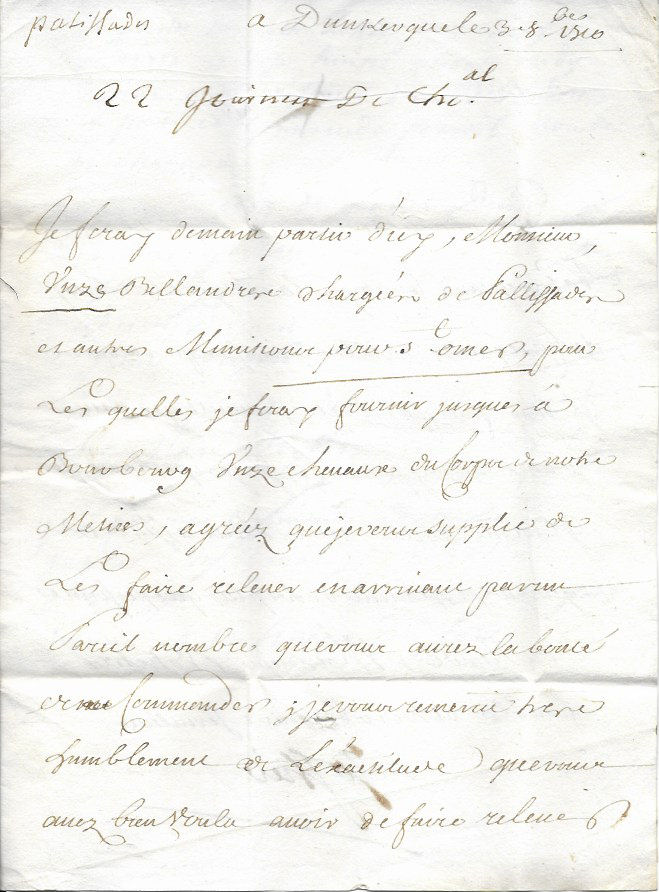 palissades
a Dunkerque le 3. 8.bre 1710
22 Journees De Che.al
Je feray demain partir d'icy, Monsieur,
Unze Bellandres chargées de Pallissades
et autres Munitions pour St Omer, pour
Les quelles je feray fournir jusques à
Bourbourg Unze chevaux du Corps de notre
Metier, agréez que je vous supplie de
Les faire relever en arrivant par un
Pareil nombre que vous aurez la bonté
de Commander, je vous remercie tres
humblement de L'exactitude que vous
avez bien voulu avoir de faire relever